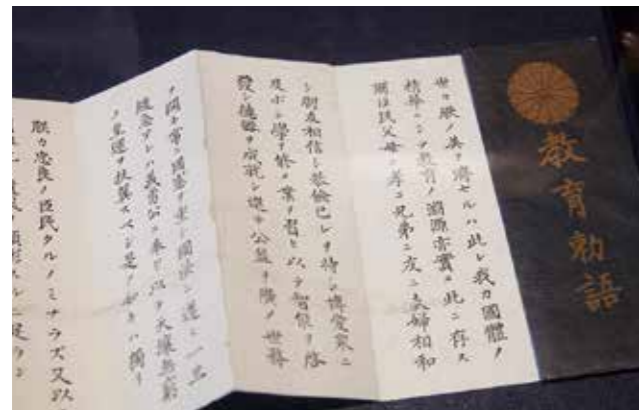 教育勅語
世々厥ノ美ヲ濟セルハ此レ我カ國體ノ
精華ニシテ教育ノ淵源亦實ニ此ニ存ス
爾臣民父母ニ孝ニ兄弟ニ友ニ夫婦相和
シ朋友相信シ恭儉己レヲ持シ博愛衆ニ
及ホシ學ヲ修メ業ヲ習ヒ以テ智能ヲ啓
發シ德器ヲ成就シ進テ公益ヲ廣メ世務
ヲ開キ常ニ國憲ヲ重シ國法ニ遵ヒ一旦
緩急アレハ義勇公ニ奉シ以テ天壤無窮
ノ皇運ヲ扶翼スヘシ是ノ如キハ獨リ
朕カ忠良ノ臣民タルノミナラス又以
遺風ヲ顯彰スルニ足ラン